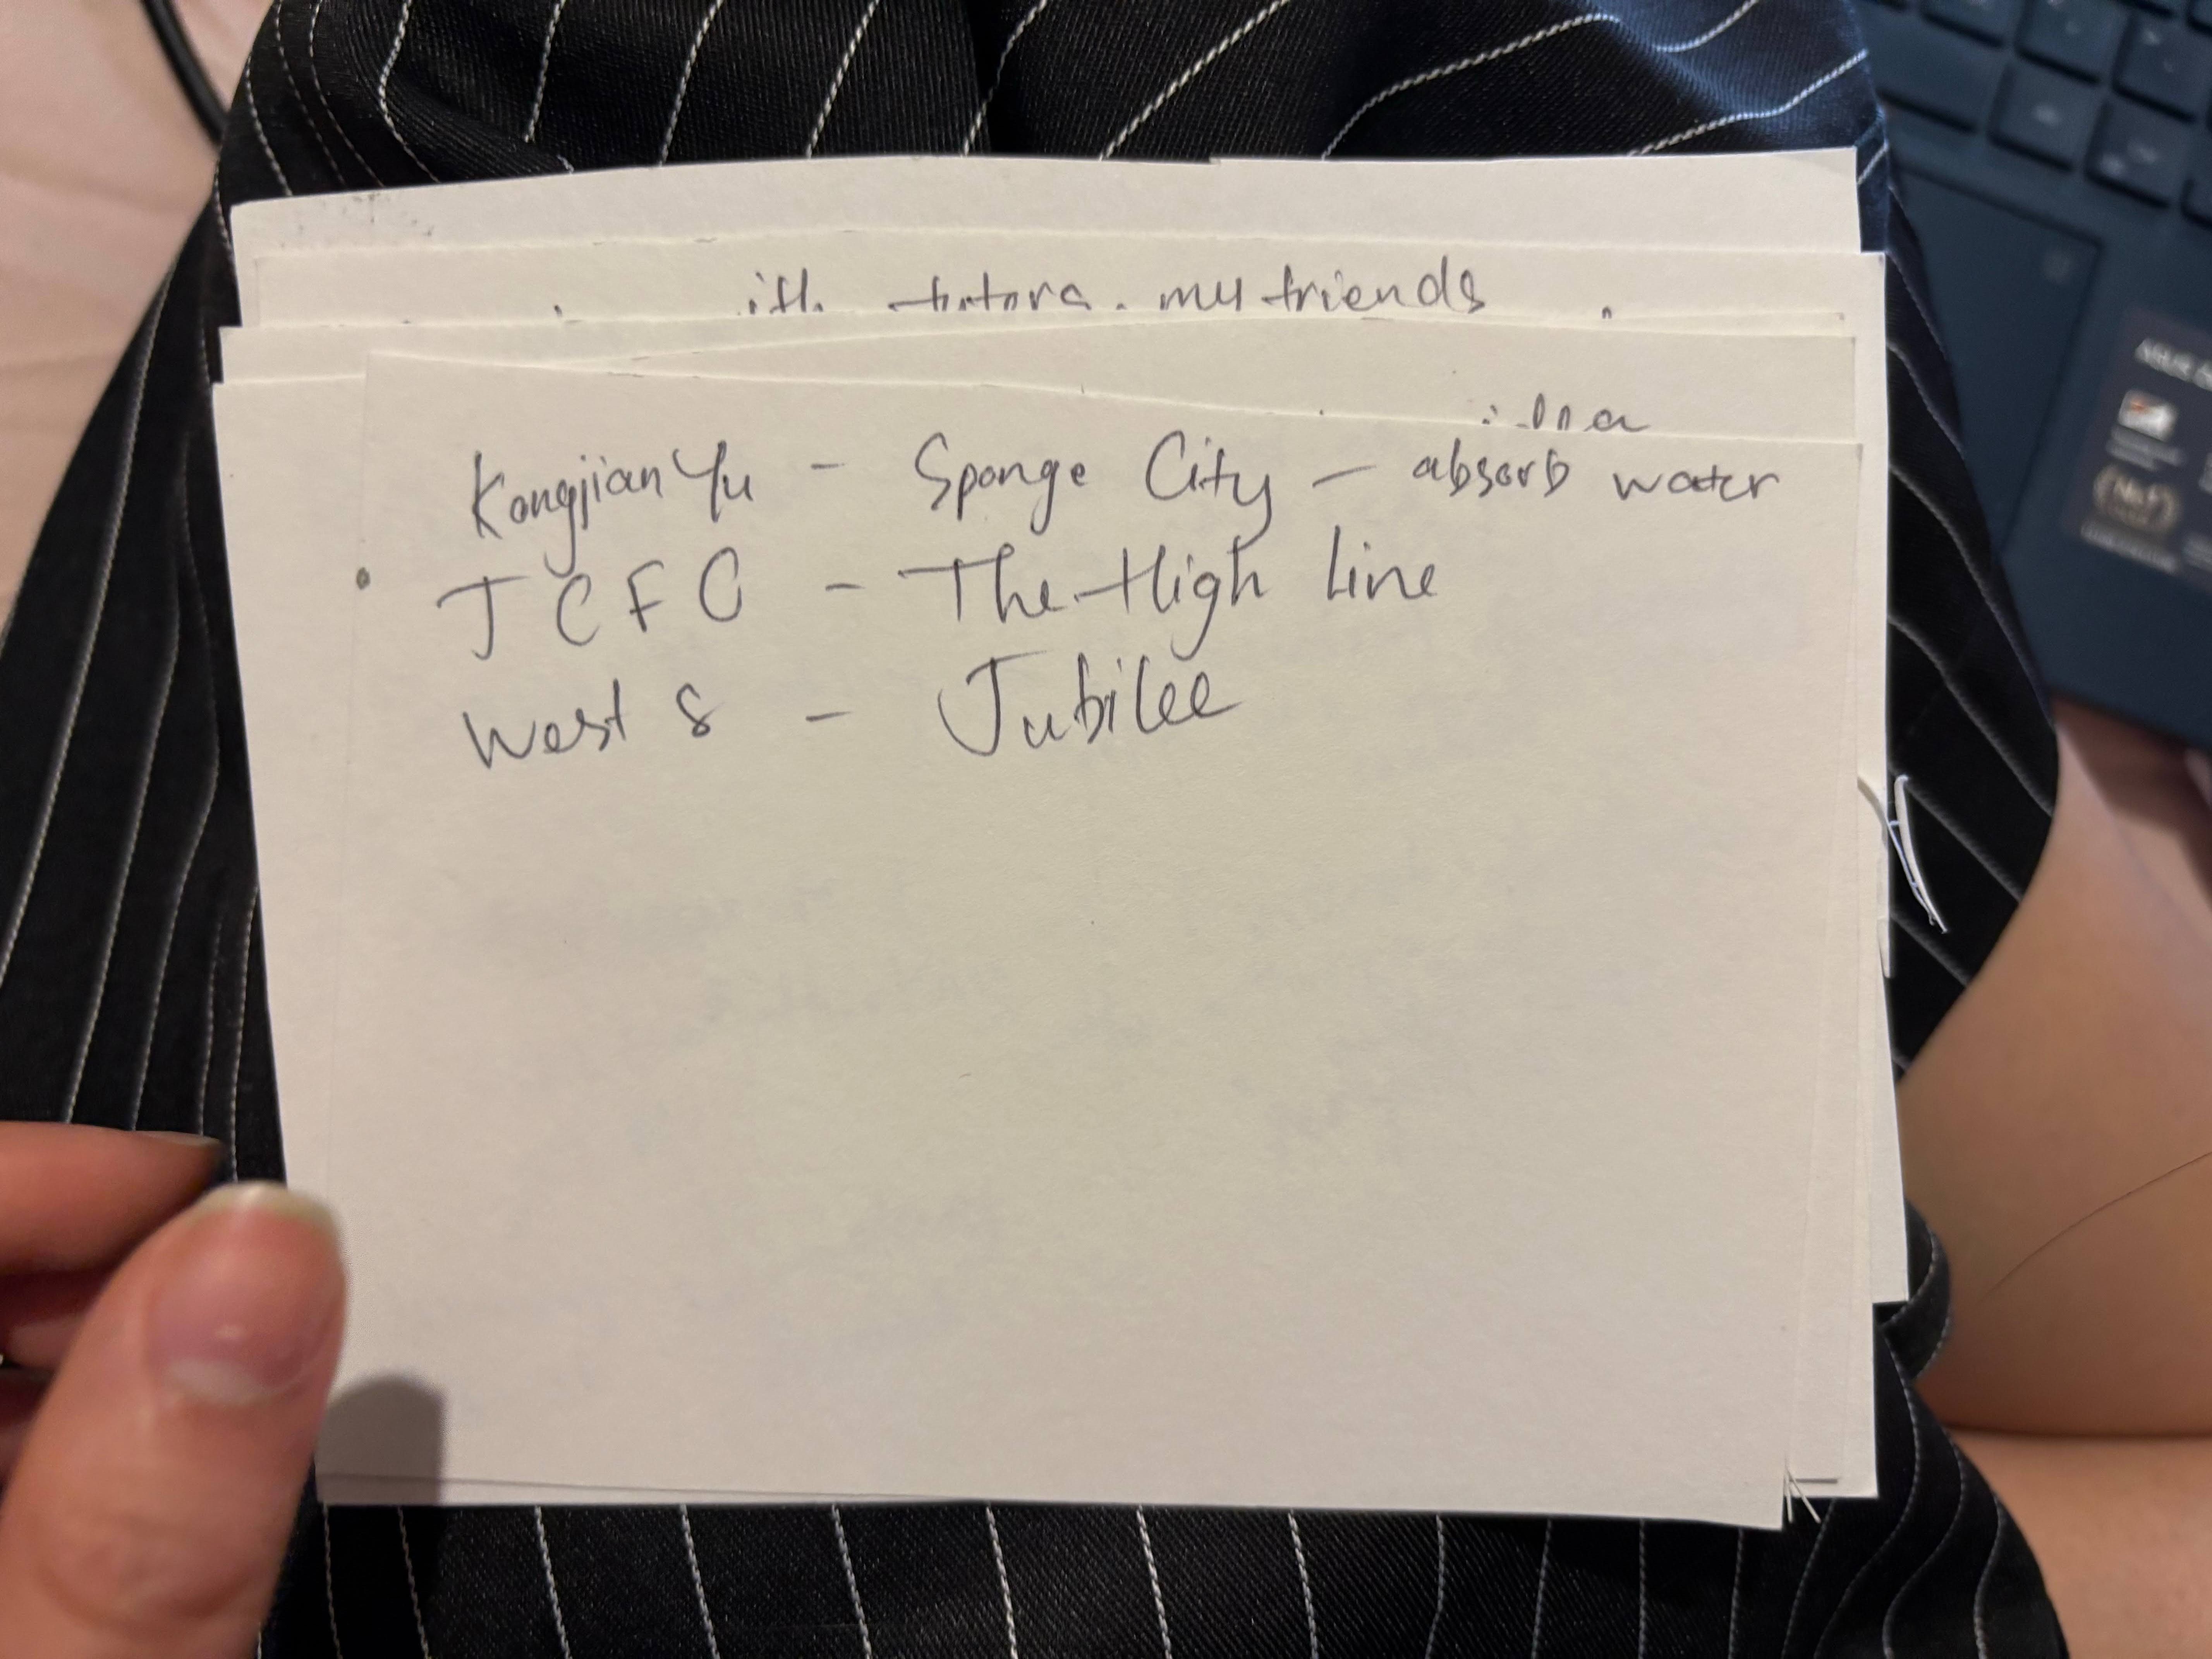 my friends
Kongjian Yu - Sponge City - absorb water
J C F O - The High Line
West 8 - Jubilee